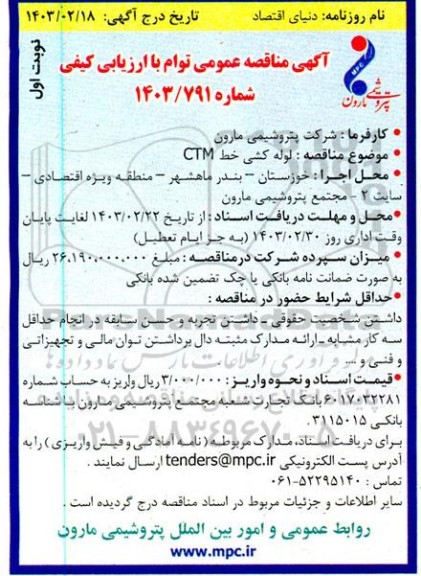 نام روزنامه: دنیای اقتصاد تاریخ درج آگهی: ۱۴۰۳/۰۲/۱۸
نوبت اول
آگهی مناقصه عمومی توام با ارزیابی کیفی
شماره ۱۴۰۳/۷۹۱
MPC
پتروشیمی مارون
• کارفرما : شرکت پتروشیمی مارون
• موضوع مناقصه : لوله کشی خط CTM
• محل اجرا : خوزستان – بندر ماهشهر – منطقه ویژه اقتصادی –
سایت ۲ – مجتمع پتروشیمی مارون
•محل و مهلت دریافت اسناد : از تاریخ ۱۴۰۳/۰۲/۲۲ لغایت پایان
وقت اداری روز ۱۴۰۳/۰۲/۳۰ (به جز ایام تعطیل)
• میزان سپرده شرکت درمناقصه : مبلغ ۲۶،۱۹۰،۰۰۰،۰۰۰ ریال
به صورت ضمانت نامه بانکی یا چک تضمین شده بانکی
•حداقل شرایط حضور در مناقصه :
داشتن شخصیت حقوقی - داشتن تجربه و حسن سابقه در انجام حداقل
سه کار مشابه - ارائه مدارک مثبته دال برداشتن توان مالی و تجهیزاتی
و فنی و ...
•قیمت اسناد و نحوه واریز : ۳/۰۰۰/۰۰۰ ریال واریز به حساب شماره
۶۰۱۷۰۳۲۲۸۱ بانک تجارت شعبه مجتمع پتروشیمی مارون با شناسه
بانکی ۳۱۱۵۰۱۵ .
۰۲۱-۸۸۳۴۹۶۷۰
برای دریافت اسناد، مدارک مربوطه ( نامه آمادگی و فیش واریزی ) را به
آدرس پست الکترونیکی tenders@mpc.ir ارسال نمایند .
تماس : ۵۲۲۹۵۱۴۰-۰۶۱
سایر اطلاعات و جزئیات مربوط در اسناد مناقصه درج گردیده است .
روابط عمومی و امور بین الملل پتروشیمی مارون
www.mpc.ir